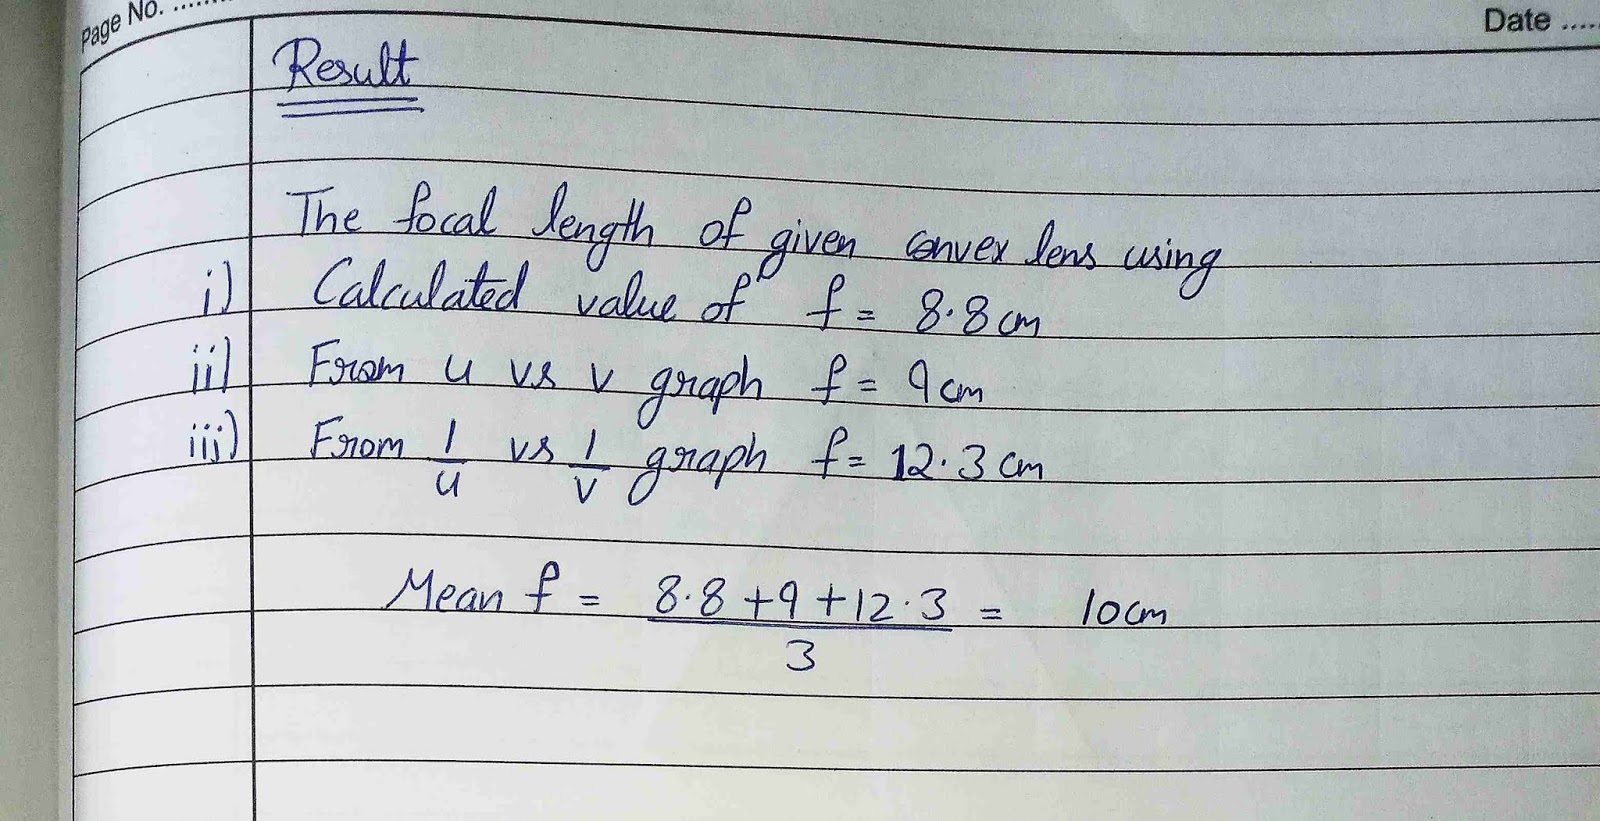 Page No. ........
Date .....
Result
The focal length of given convex lens using
i) Calculated value of f = 8.8 cm
ii) From u vs v graph f = 9 cm
iii) From 1/u vs 1/v graph f = 12.3 cm
Mean f = 8.8 + 9 + 12.3 = 10 cm
3